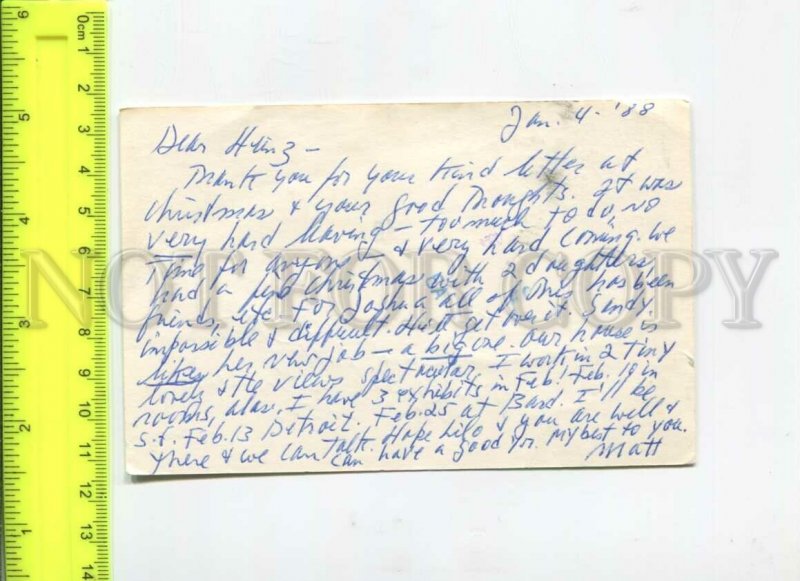 Jan. 4 - '88
Dear Heinz -
Thank you for your kind letter at
Christmas & your good thoughts. It was
very hard leaving - too much to do, no
time for anyone - & very hard coming. We
had a fine Christmas with 2 daughters,
friends, etc. For Joshua all of this has been
impossible & difficult. He'll get over it. Sandy
likes her new job - a big one. Our house is
lovely & the views spectacular. I work in 2 tiny
rooms, alas. I have 3 exhibits in Feb! Feb. 10 in
S.F. Feb. 13 Detroit. Feb. 25 at Bard. I'll be
there & we can talk. Hope Lilo & you are well &
can have a good yr. My best to you.
Matt
NOT FOR COPY
0cm 1 2 3 4 5 6 7 8 9 10 11 12 13 14
6 5 4 3 2 1